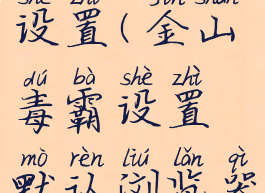 shè zhì jīn shān
设置(金山
dú bà shè zhì
毒霸设置
mò rèn liú lǎn qì
默认浏览器